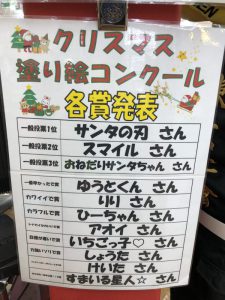 クリスマス
塗り絵コンクール
各賞発表
一般投票1位 サンタの刃 さん
一般投票2位 スマイル さん
一般投票3位 おねだりサンタちゃん さん
一番早かったで賞 ゆうとくん さん
カワイイで賞 りり さん
カラフルで賞 ひーちゃん さん
アオイ さん
いちごっ子♡ さん
しょうた さん
けいた さん
すまいる星人☆ さん